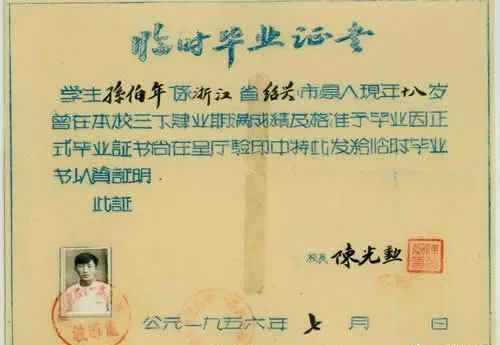 临时毕业证书
学生孫伯年係浙江省绍兴市县人現年十八岁
曾在本校三下肄业期满成绩及格准予毕业因正
式毕业証书尚在呈厅验印中特此发给临时毕业
书以資証明
此証
校長 陳光勲
公元一九五六年七月 日